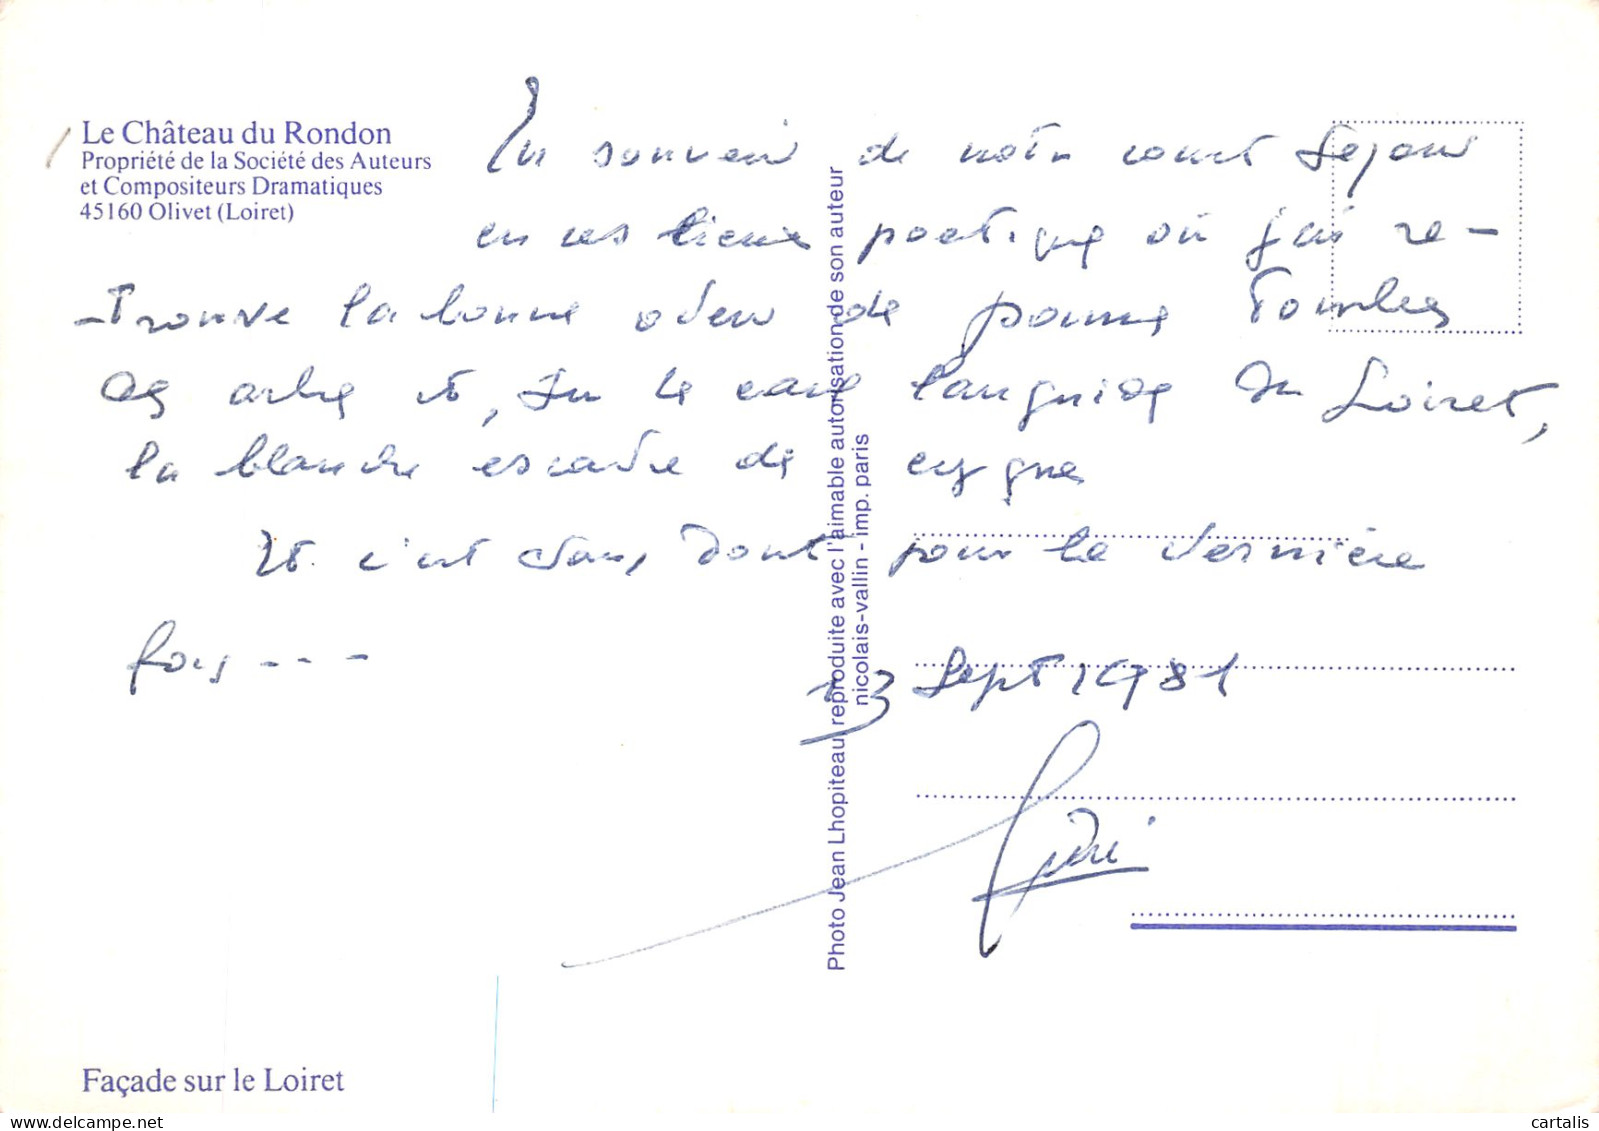 Le Château du Rondon
Propriété de la Société des Auteurs
et Compositeurs Dramatiques
45160 Olivet (Loiret)
En souvenir de notre court séjour
en ces lieux poetique où j'ai re-
-trouvé la bonne odeur de pomme tombées
des arbre et, sur le eaux languide du Loiret,
la blanche escadre de cygne
Et c'est sans doute pour la dernière
fois ---
Sept 1981
Photo Jean Lhopiteau reproduite avec l'aimable autorisation de son auteur
nicolais-vallin - imp. paris
Façade sur le Loiret
cartalis